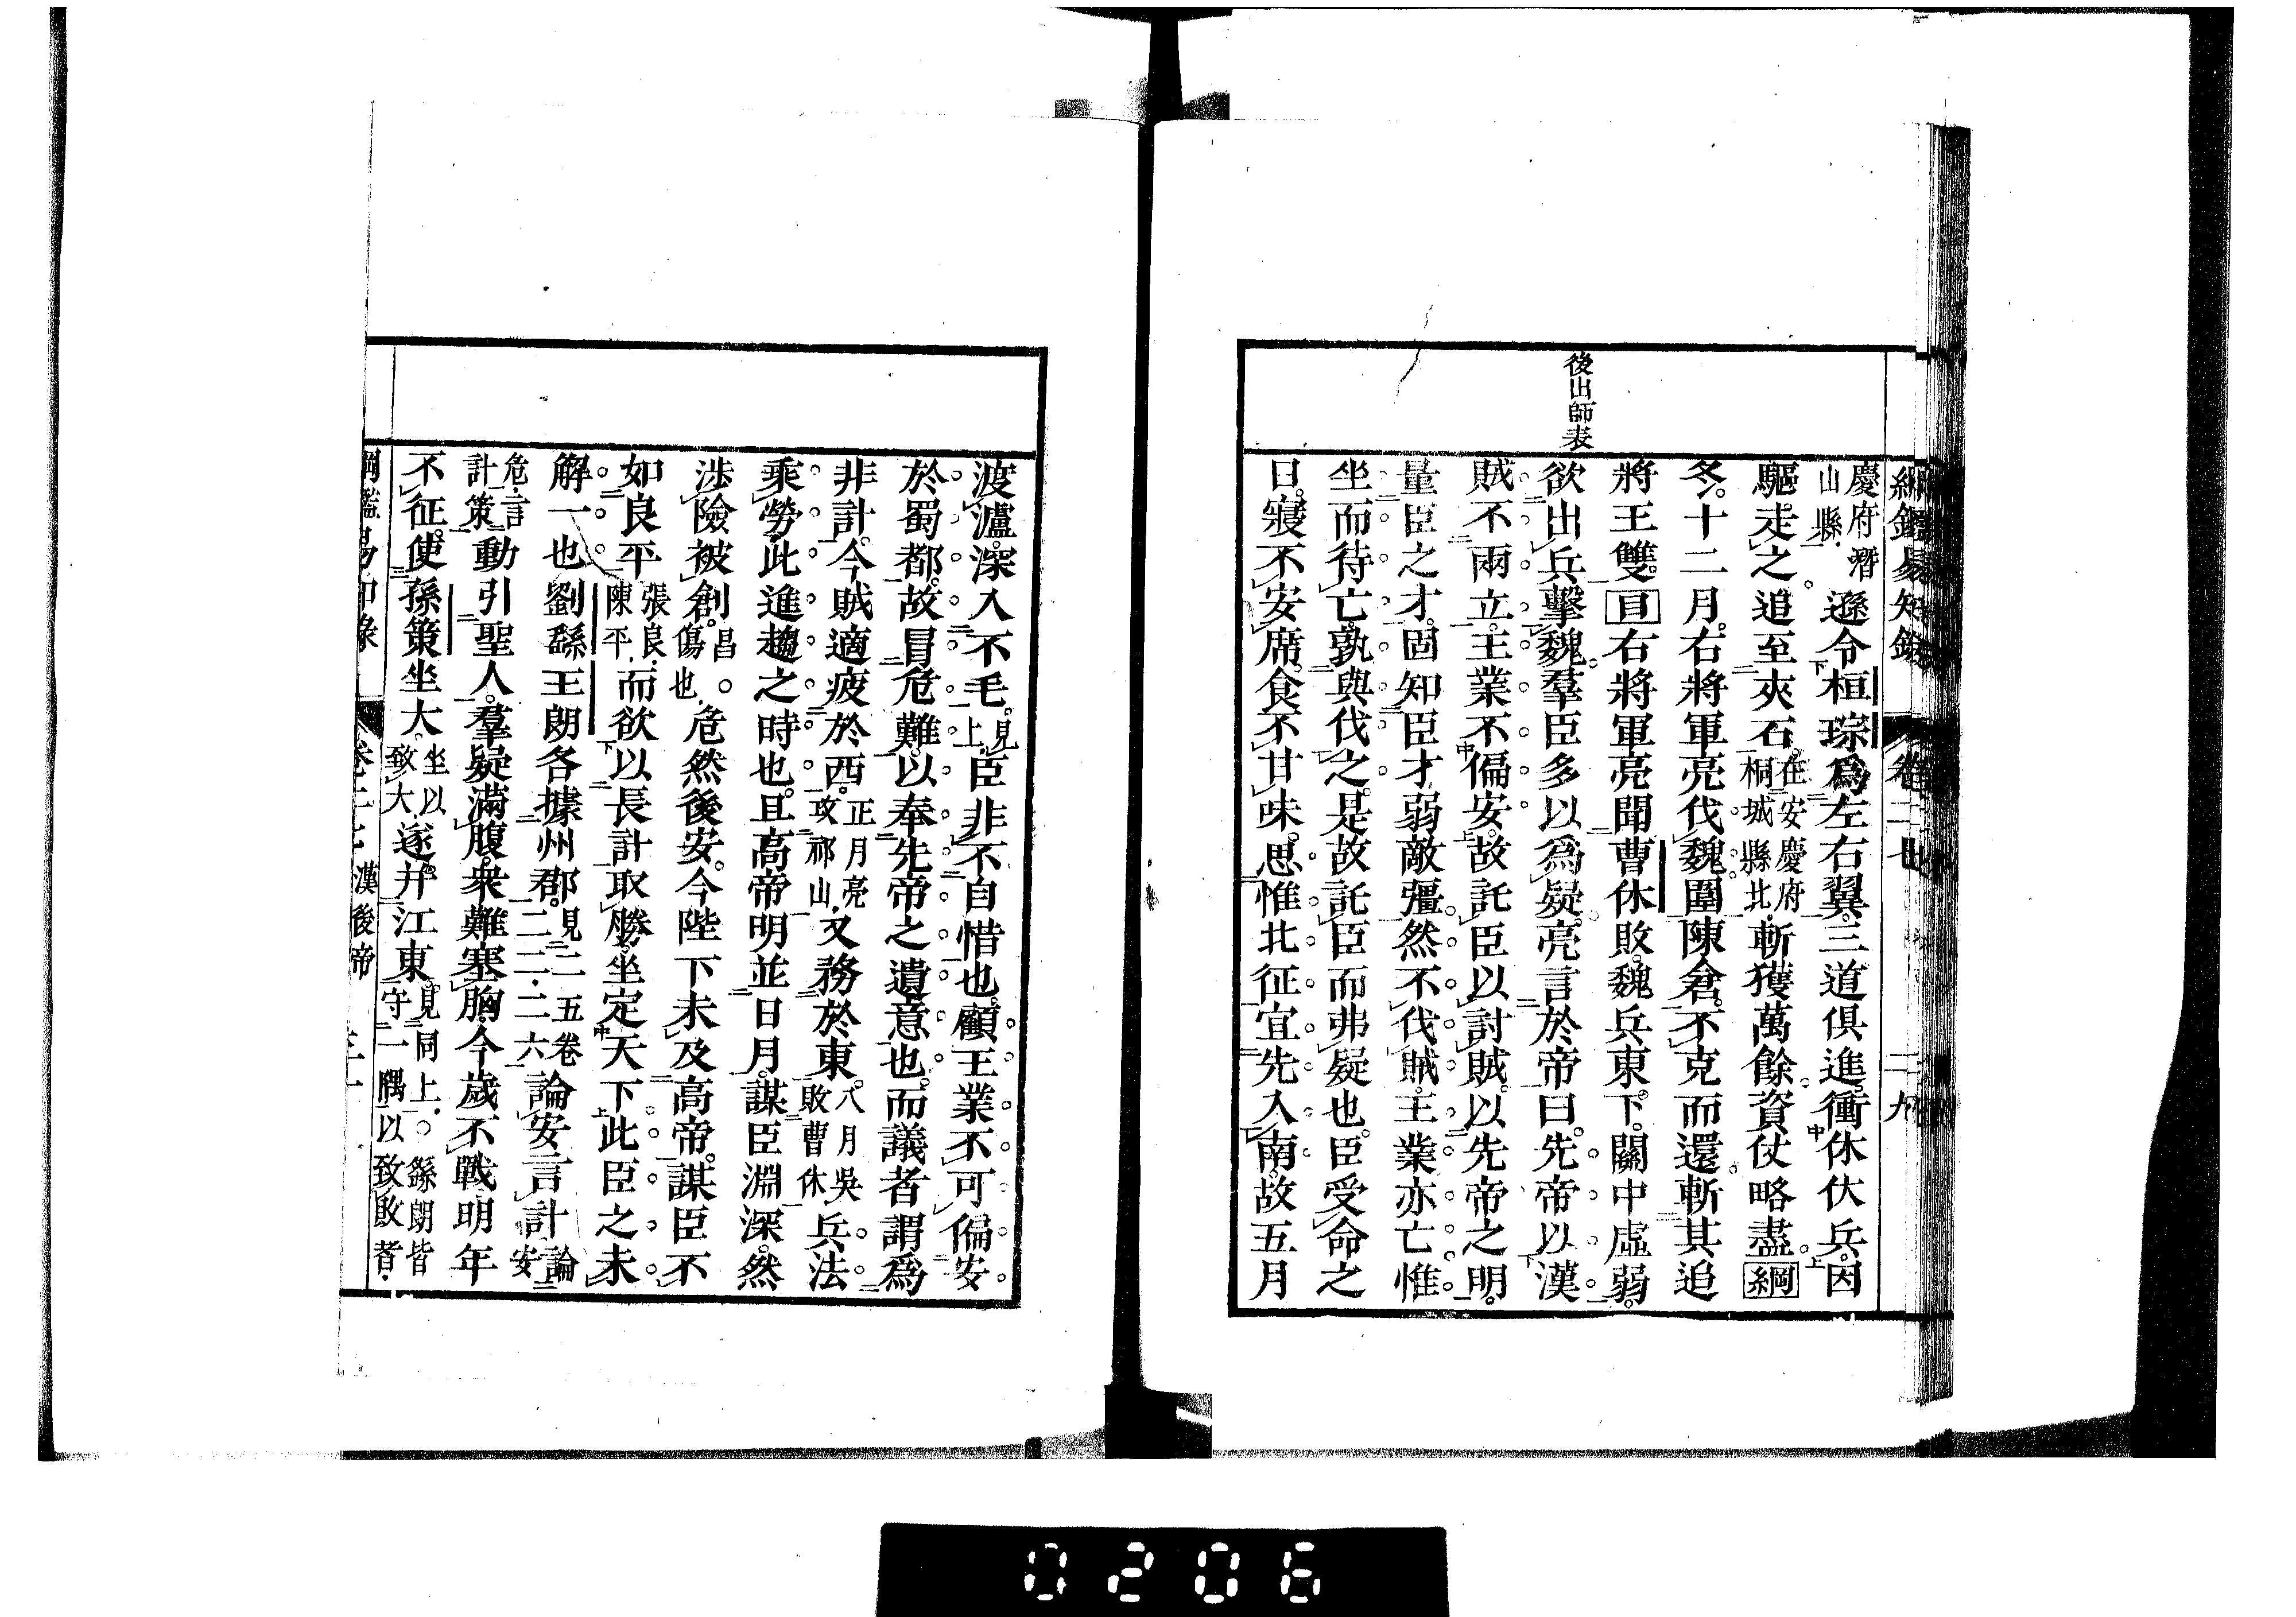 綱鑑易知錄 卷二七 二九
後出師表
慶府潛山縣遜令桓琮爲左右翼三道俱進衝休伏兵因
驅走之追至夾石在安慶府桐城縣北斬獲萬餘資仗略盡綱
冬十二月右將軍亮伐魏圍陳倉不克而還斬其追
將王雙目右將軍亮聞曹休敗魏兵東下關中虛弱
欲出兵擊魏羣臣多以爲疑亮言於帝曰先帝以漢
賊不兩立王業不偏安故託臣以討賊以先帝之明
量臣之才固知臣才弱敵彊然不伐賊王業亦亡惟
坐而待亡孰與伐之是故託臣而弗疑也臣受命之
日寢不安席食不甘味思惟北征宜先入南故五月
渡瀘深入不毛見上臣非不自惜也顧王業不可偏安
於蜀都故冒危難以奉先帝之遺意也而議者謂爲
非計今賊適疲於西正月亮攻祁山又務於東八月吳敗曹休兵法
乘勞此進趨之時也且高帝明並日月謀臣淵深然
涉險被創昌傷也危然後安今陛下未及高帝謀臣不
如良平張良陳平而欲以長計取勝坐定天下此臣之未
解一也劉繇王朗各據州郡見二五卷二二二六論安言計論安
危言計策動引聖人羣疑滿腹衆難塞胸今歲不戰明年
不征使孫策坐大坐以致大遂并江東見同上繇朗皆守一隅以致敗者
綱鑑易知錄 卷二七 漢後帝 三十
0206